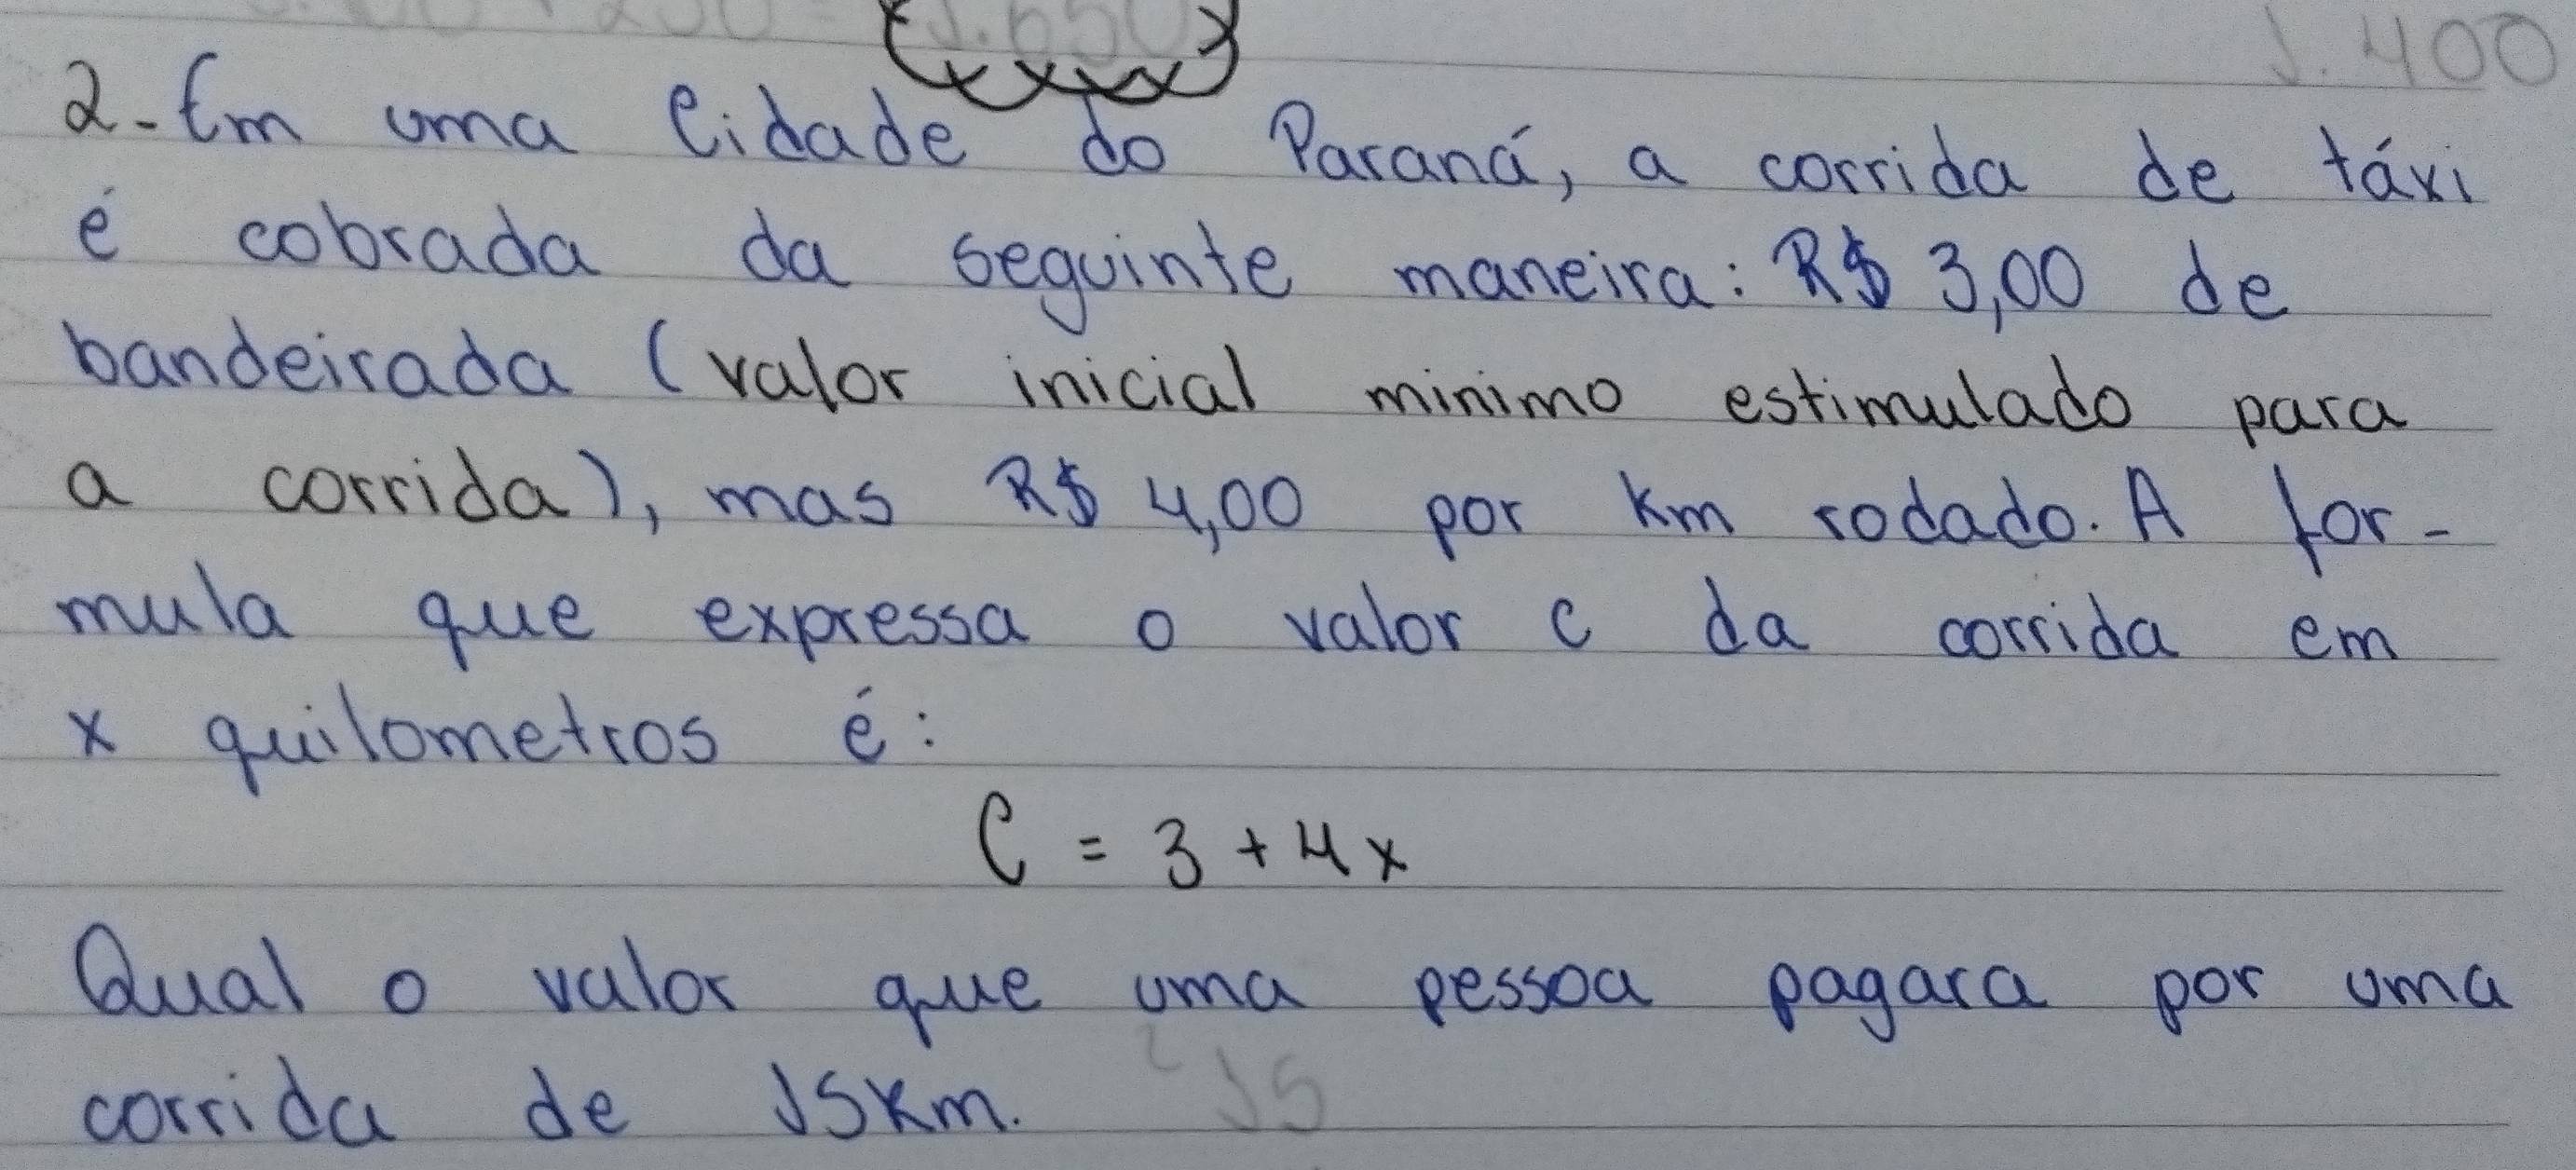 J.400
2-Em uma Cidade do Paraná, a corrida de táxi
é cobrada da seguinte maneira: R$ 3,00 de
bandeirada (valor inicial minimo estimulado para
a corrida), mas R$ 4,00 por Km rodado. A for-
mula que expressa o valor c da corrida em
x quilometros é:
C = 3 + 4x
Qual o valor que uma pessoa pagara por uma
corrida de 15Km.
15